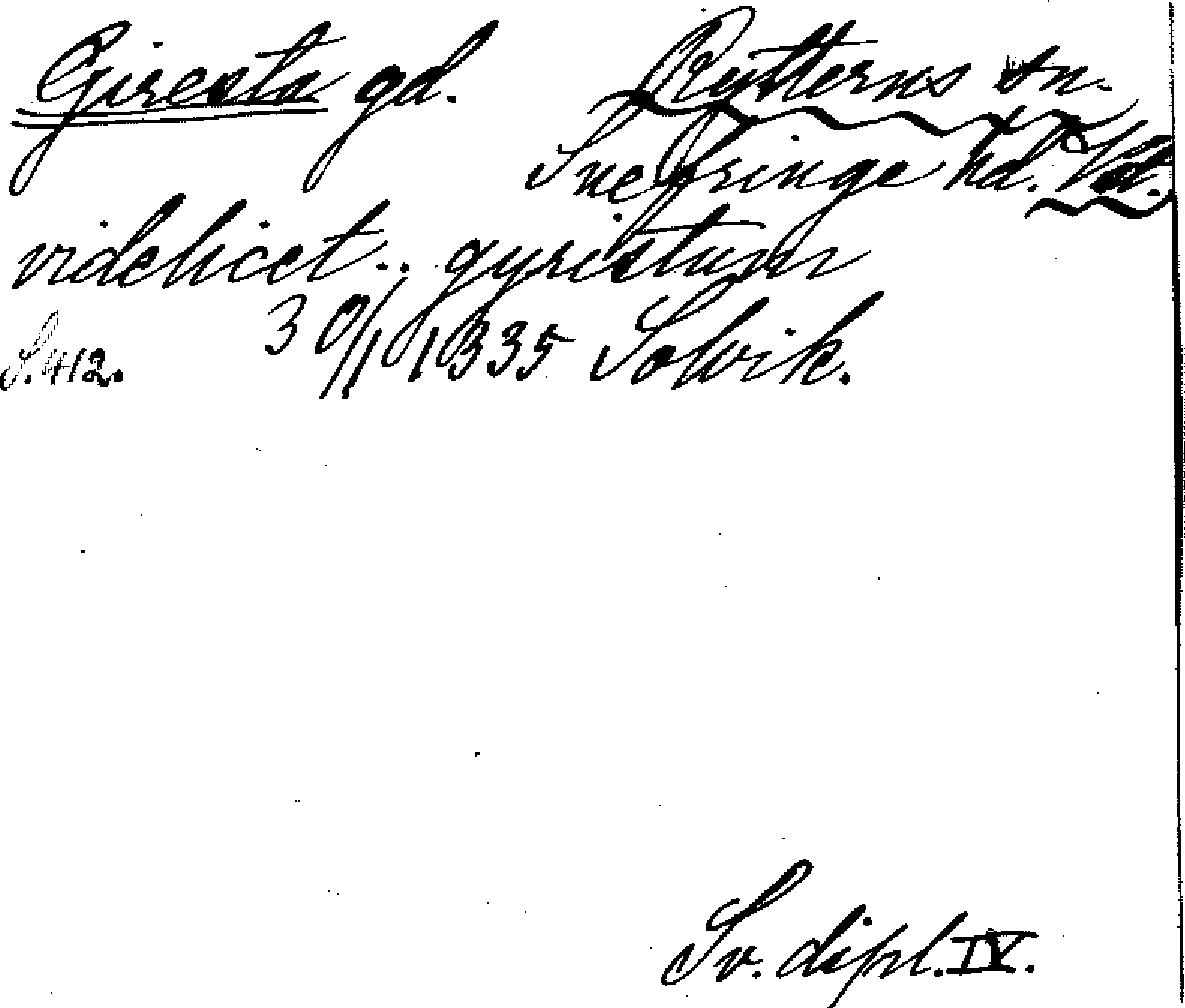 Giresta gd. Rytterns sn.
Snefringe hd. Vstm.
videlicet.. gyristum
S. 412. 30/11 1335 Solvik.
Sv. dipl. IV.